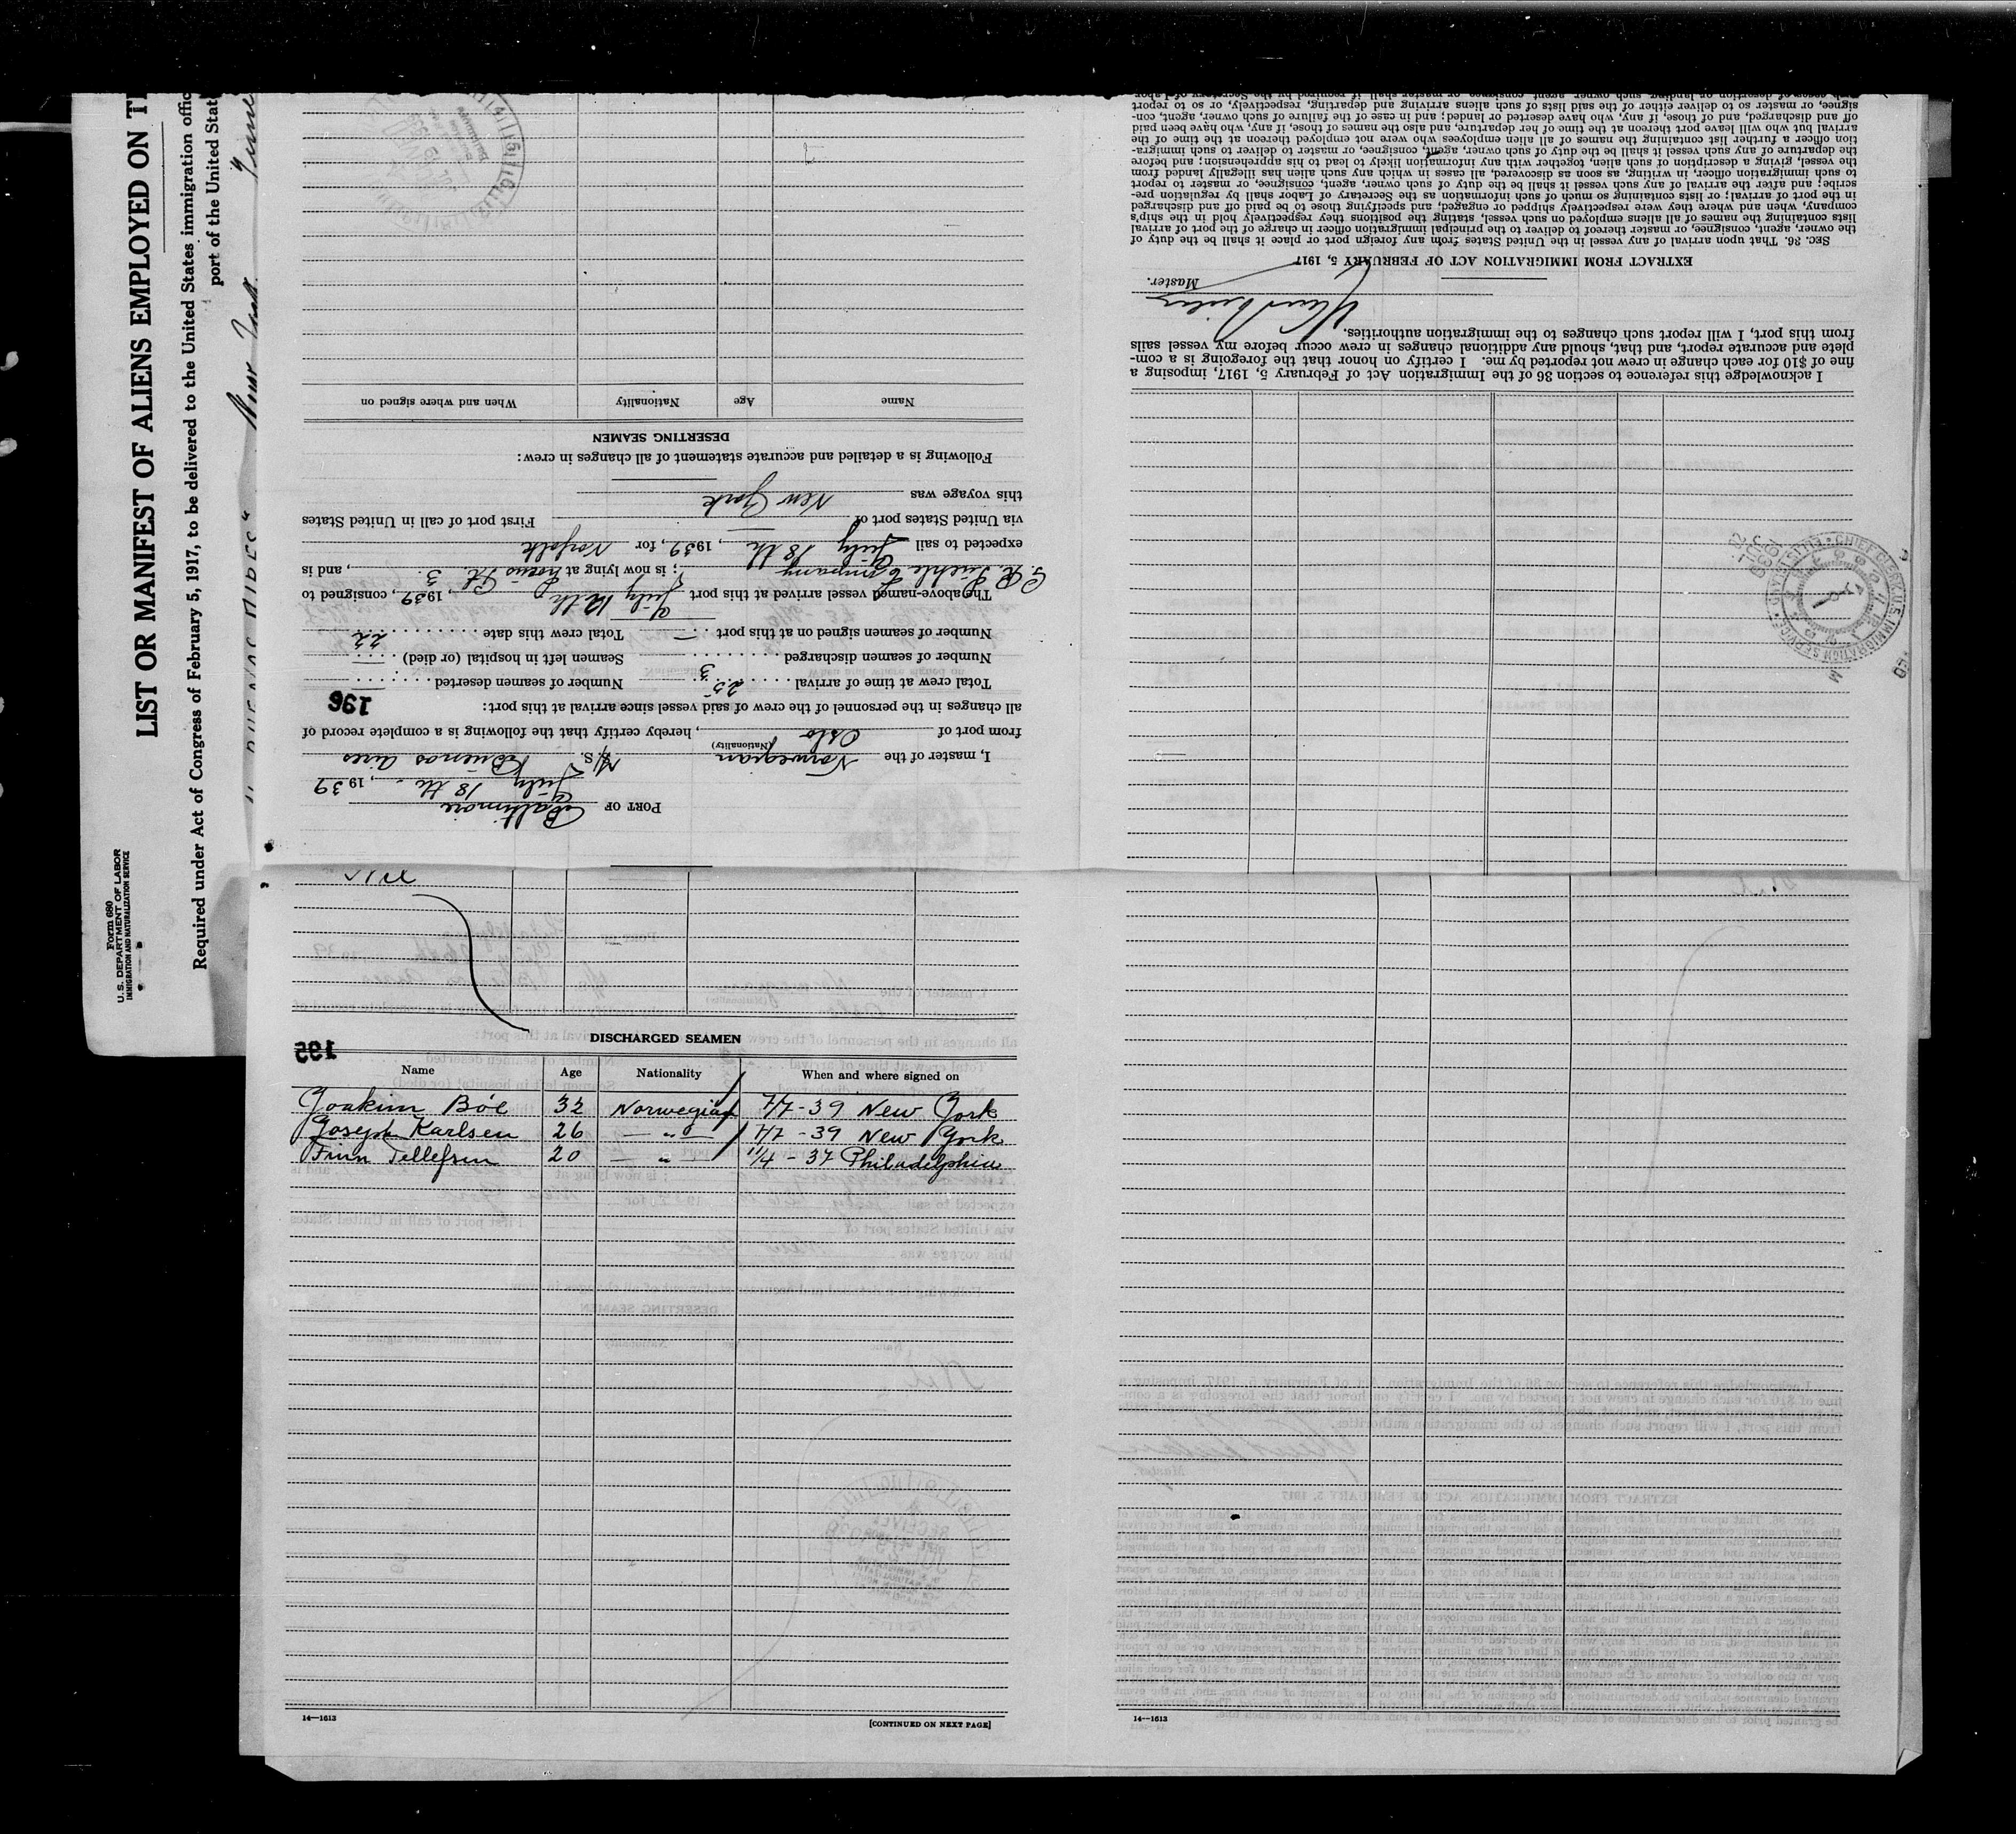 Form 680
U. S. DEPARTMENT OF LABOR
IMMIGRATION AND NATURALIZATION SERVICE
LIST OR MANIFEST OF ALIENS EMPLOYED ON T
Required under Act of Congress of February 5, 1917, to be delivered to the United States immigration offic
port of the United Stat
"BUENOS AIRES"
New York
June
PORT OF Baltimore
July 18 th., 1939
I, master of the Norwegian M/S. Buenos Aires
(Nationality)
from port of Oslo, hereby certify that the following is a complete record of
all changes in the personnel of the crew of said vessel since arrival at this port:
196
Total crew at time of arrival 25 Number of seamen deserted
Number of seamen discharged 3 Seamen left in hospital (or died)
Number of seamen signed on at this port — Total crew this date 22
The above-named vessel arrived at this port July 12 th, 1939, consigned to
Company; is now lying at Locust Pt. 3., and is
expected to sail July 18 th, 1939, for Norfolk
via United States port of — First port of call in United States
this voyage was New York
Following is a detailed and accurate statement of all changes in crew:
DESERTING SEAMEN
Name Age Nationality When and where signed on
I acknowledge this reference to section 36 of the Immigration Act of February 5, 1917, imposing a
fine of $10 for each change in crew not reported by me. I certify on honor that the foregoing is a com-
plete and accurate report, and that, should any additional changes in crew occur before my vessel sails
from this port, I will report such changes to the immigration authorities.
Master.
EXTRACT FROM IMMIGRATION ACT OF FEBRUARY 5, 1917
SEC. 36. That upon arrival of any vessel in the United States from any foreign port or place it shall be the duty of
the owner, agent, consignee, or master thereof to deliver to the principal immigration officer in charge of the port of arrival
lists containing the names of all aliens employed on such vessel, stating the positions they respectively hold in the ship's
company, when and where they were respectively shipped or engaged, and specifying those to be paid off and discharged
in the port of arrival; or lists containing so much of such information as the Secretary of Labor shall by regulation pre-
scribe; and after the arrival of any such vessel it shall be the duty of such owner, agent, consignee, or master to report
to such immigration officer, in writing, as soon as discovered, all cases in which any such alien has illegally landed from
the vessel, giving a description of such alien, together with any information likely to lead to his apprehension; and before
the departure of any such vessel it shall be the duty of such owner, agent, consignee, or master to deliver to such immigra-
tion officer a further list containing the names of all alien employees who were not employed thereon at the time of the
arrival but who will leave port thereon at the time of her departure, and also the names of those, if any, who have been paid
off and discharged, and of those, if any, who have deserted or landed; and in case of the failure of such owner, agent, con-
signee, or master so to deliver either of the said lists of such aliens arriving and departing, respectively, or so to report
CHIEF CLERK U.S. IMMIGRATION SERVICE
Nil
DISCHARGED SEAMEN
195
Name Age Nationality When and where signed on
Joakim Böe 32 Norwegian 7/7-39 New York
Joseph Karlsen 26 — " — 7/7-39 New York
Finn Tellefsen 20 — " — 11/4-37 Philadelphia
14—1613
[CONTINUED ON NEXT PAGE]
14—1613